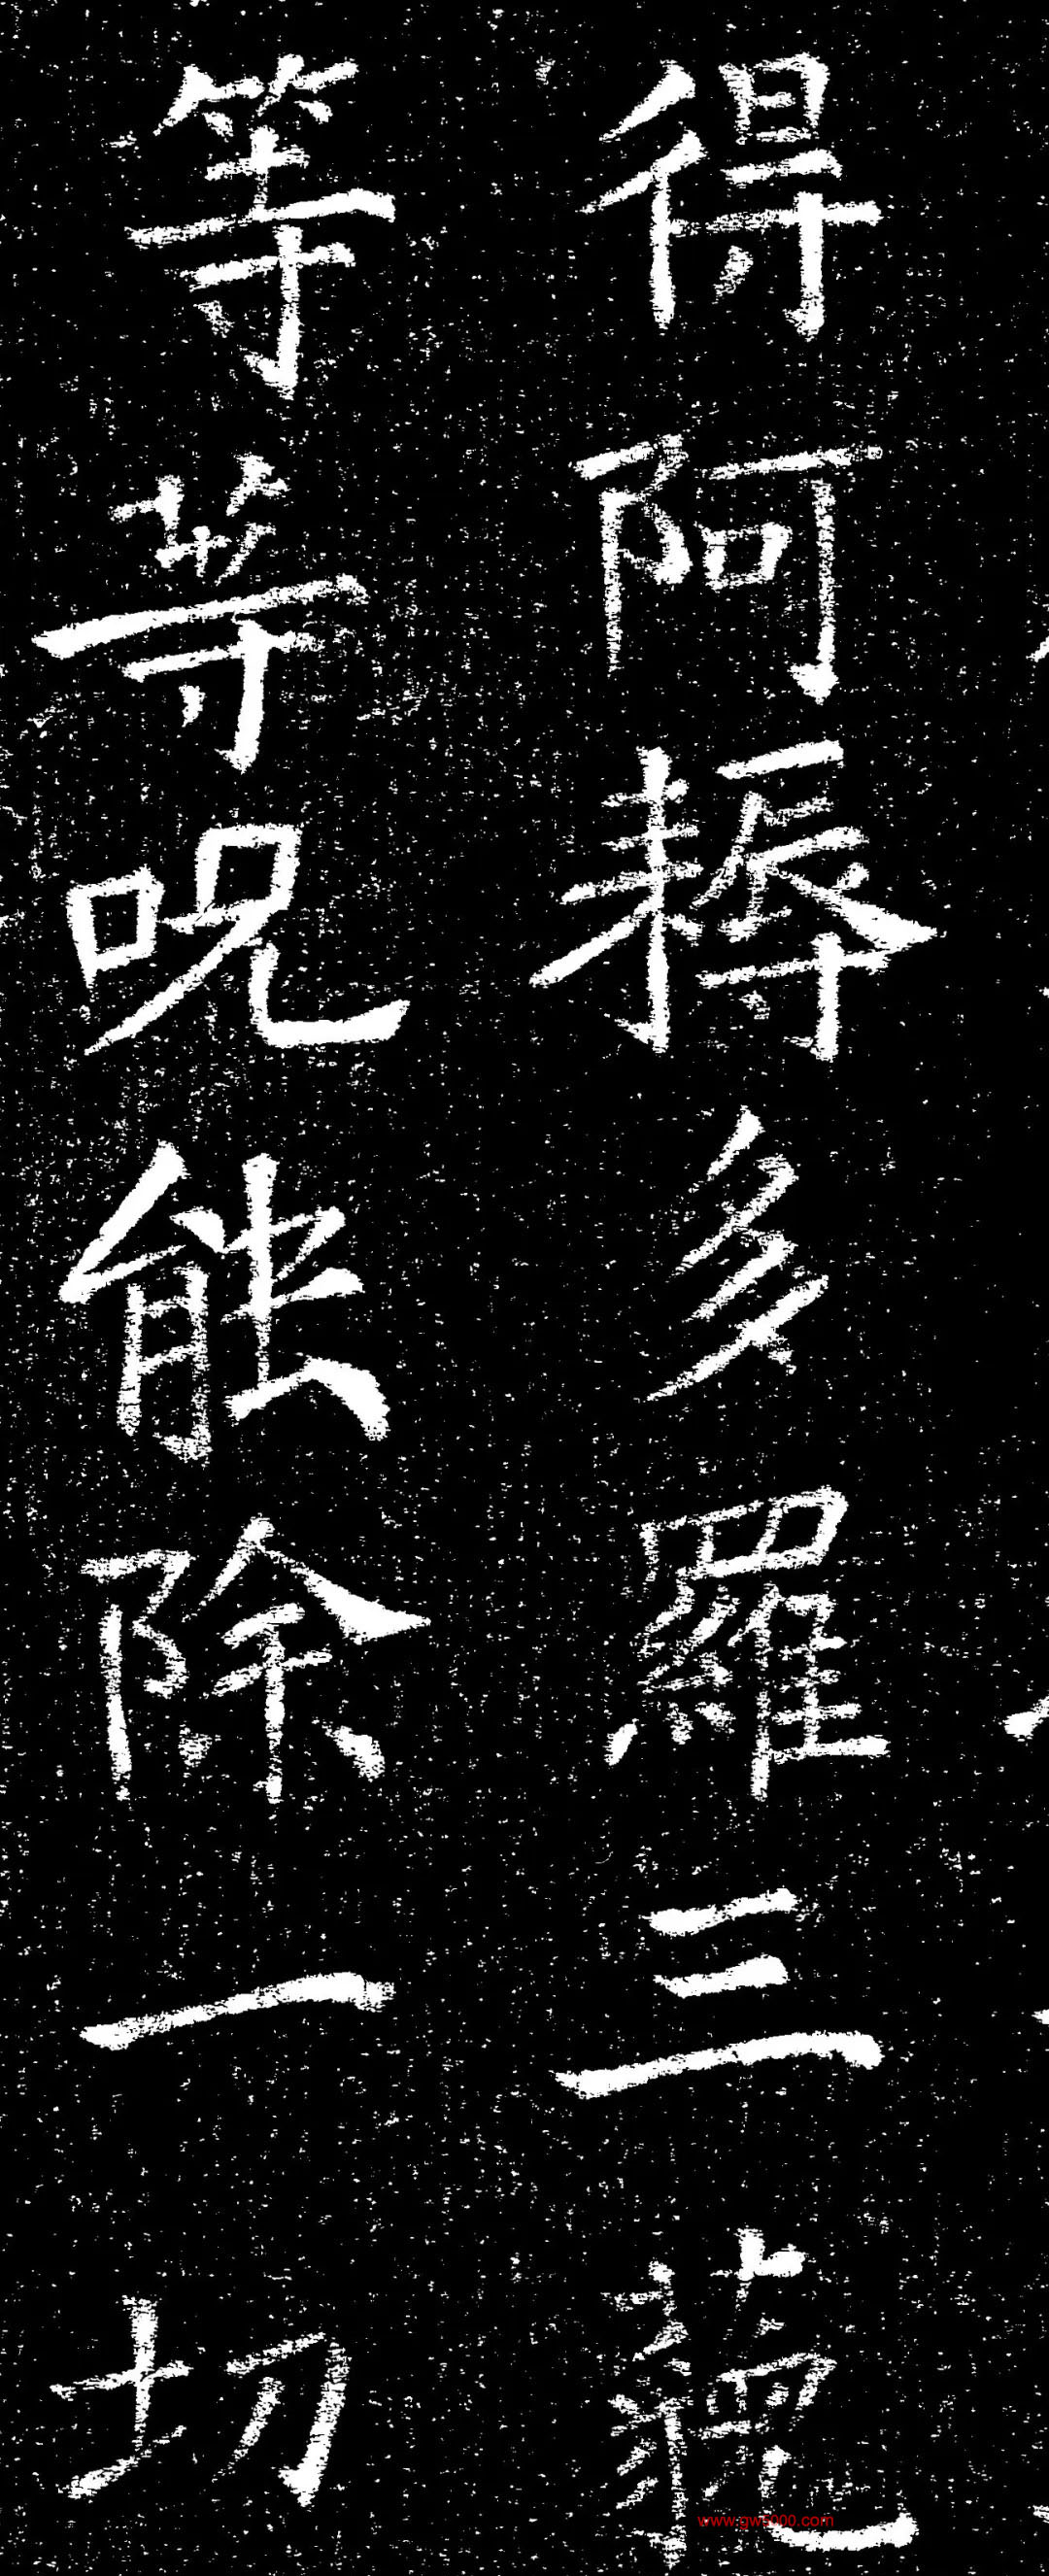 得阿耨多羅三藐
等等呪能除一切
www.gws000.com